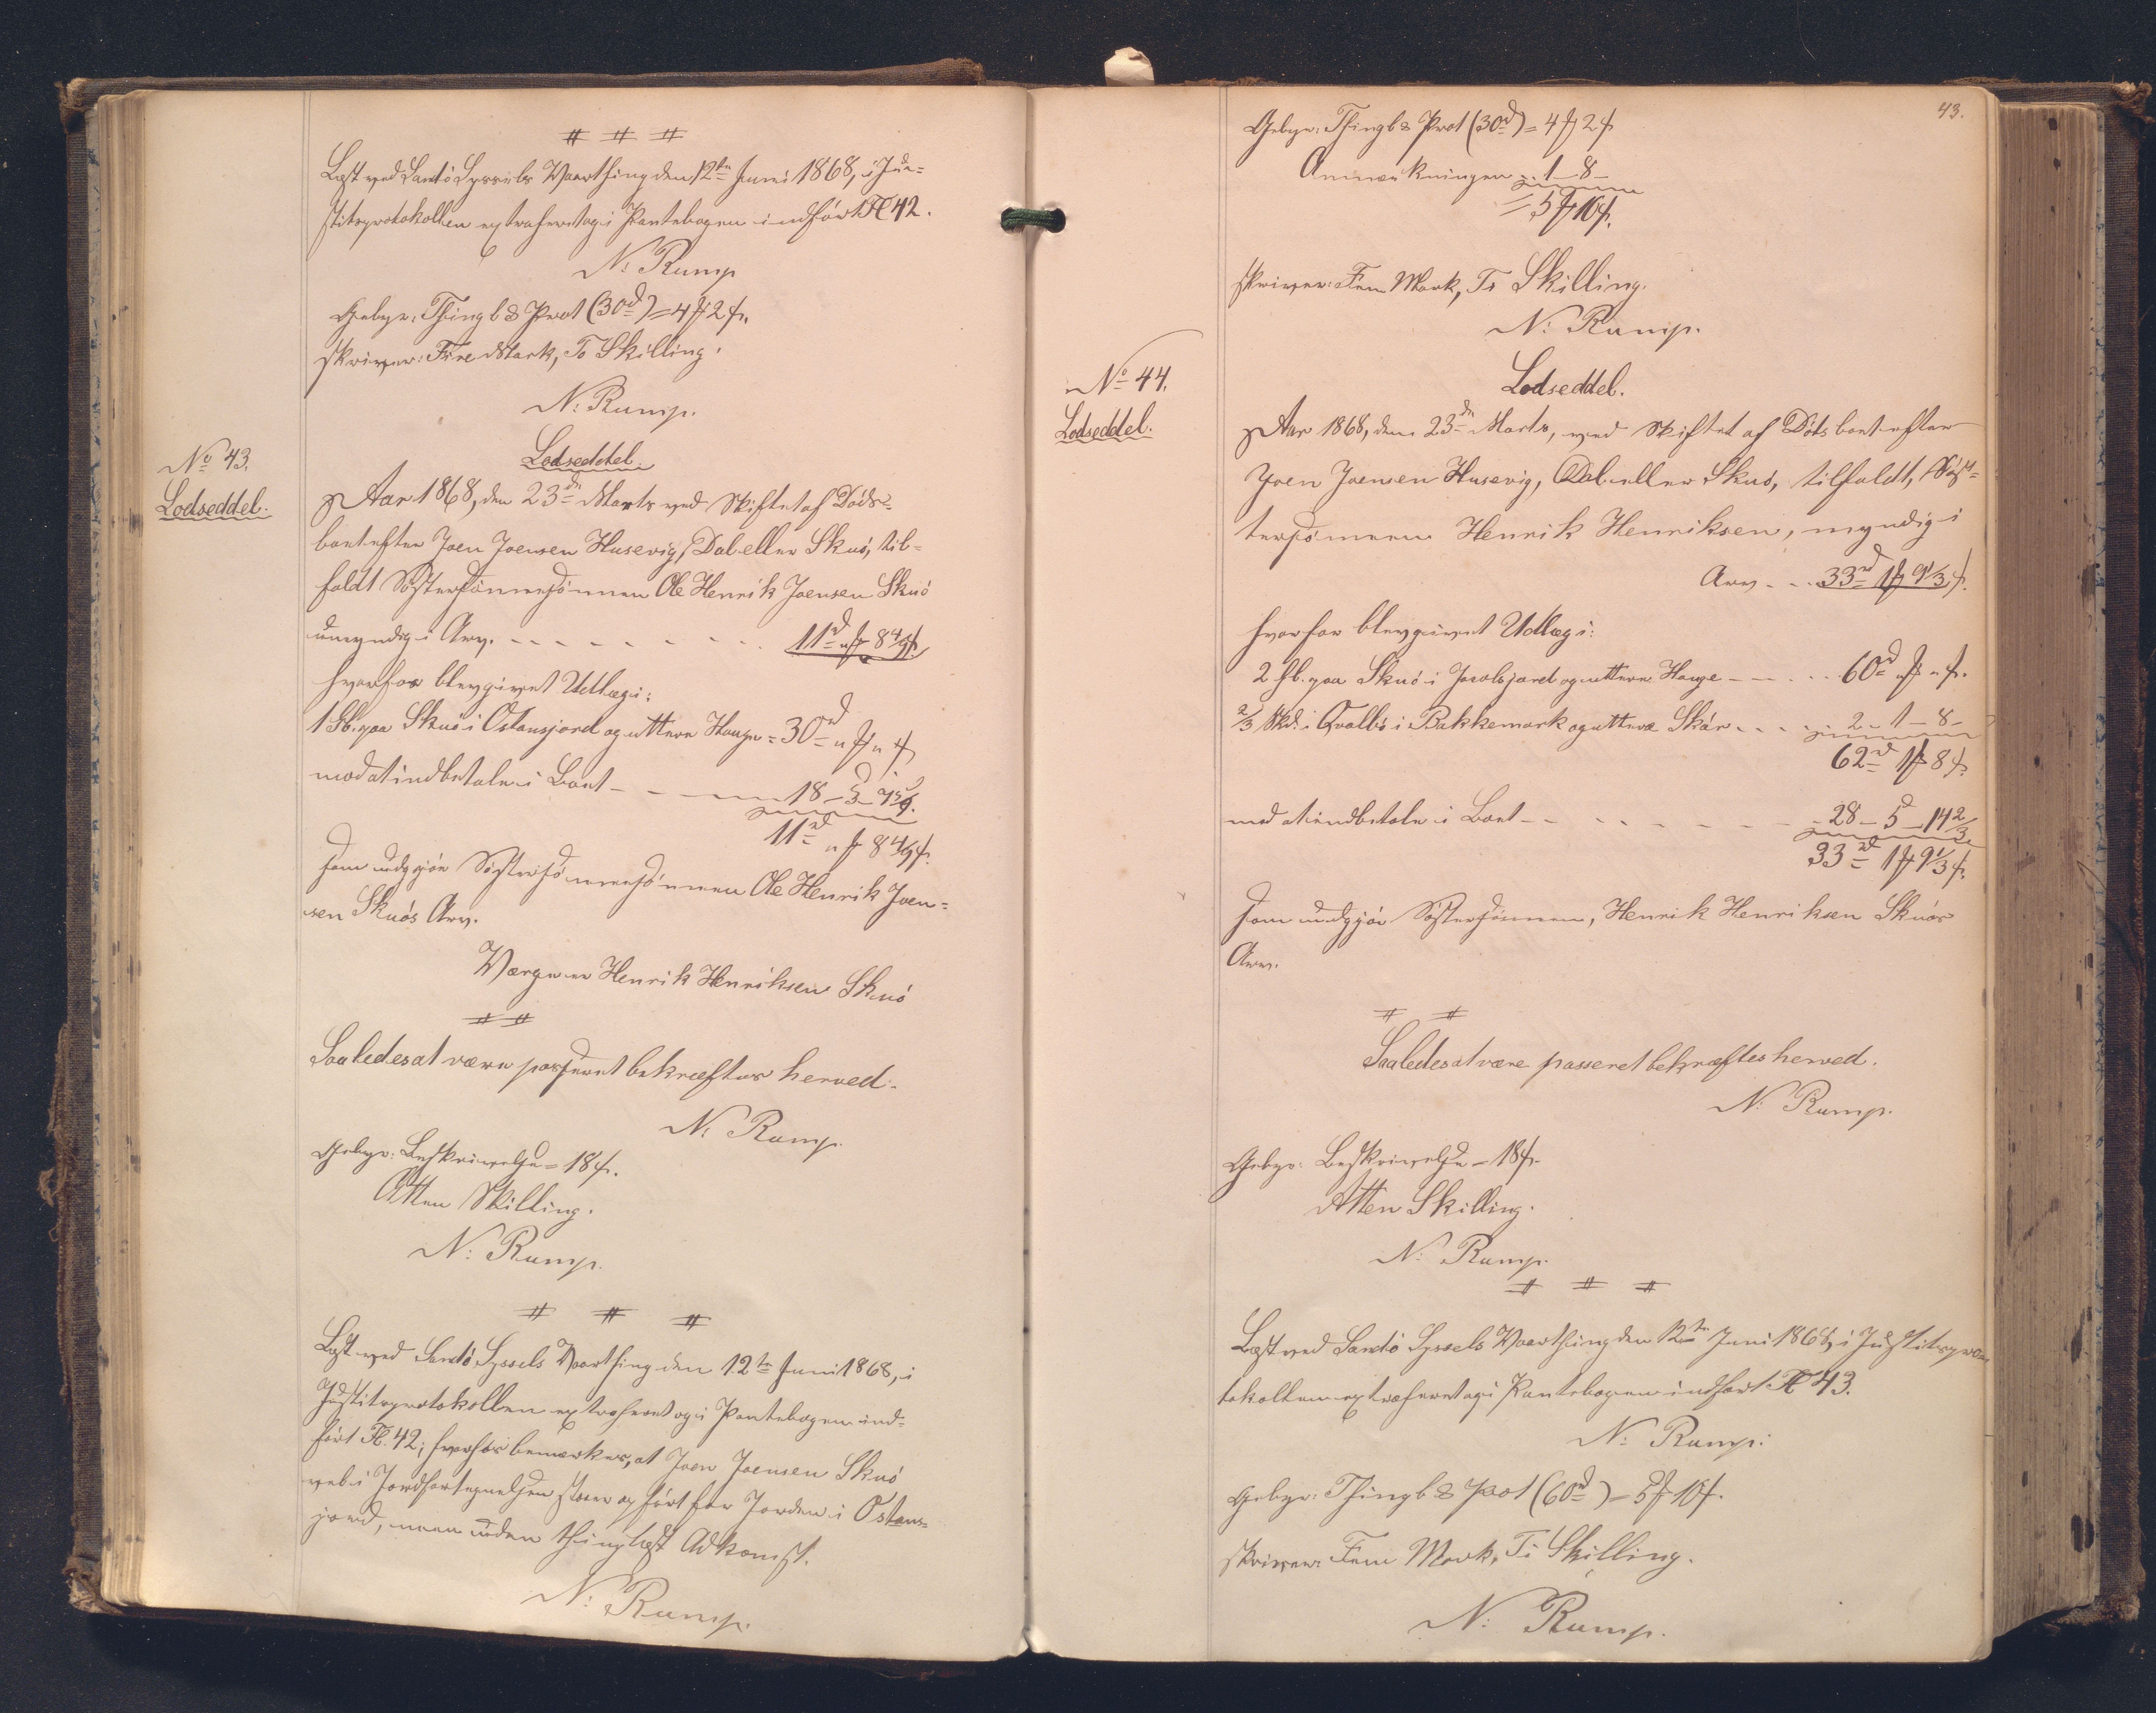 # # #
Læst ved Sandö Syssels Vaarthing den 12te Juni 1868, i Ju-
stitsprotokollen extraheret og i Pantebogen indført Fl 42.
N: Rump
Gebyr: Thingl & Prot (30rd) = 4 # 2 ß.
skriver: Fire Mark, To Skilling.
N: Rump.
No 43.
Lodseddel.
Lodseddel.
Aar 1868, den 23de Marts ved Skiftet af Döds-
boet efter Joen Joensen Husevig, Dal eller Skuö, til-
faldt Söstersönnesönnen Ole Henrik Joensen Skuö
umyndig i Arv. - - - - - - - 11rd " # 8 4/9 ß.
hvorfor blev givet Udlæg i:
1 Gl. paa Skuö i Östansjord og uttere Hauge = 30rd " # " ß
mod at indbetale i Boet - - - 18 - 5 - 7 5/9.
11rd " # 8 4/9 ß.
som udgjör Söstersönnesönnen Ole Henrik Joen-
sen Skuös Arv.
Værge er Henrik Henriksen Skuö
# #
Saaledes at være passeret bekræftes herved.
N: Rump.
Gebyr: Beskrivelse = 18 ß.
Atten Skilling.
N: Rump.
# # #
Læst ved Sandö Syssels Vaarthing den 12te Juni 1868, i
Justitsprotokollen extraheret og i Pantebogen ind-
fört Fl. 42; hvorhos bemærkes, at Joen Joensen Skuö
vel i Jordfortegnelsen staaer opfört for Jorden i Östans-
jord, men uden thinglæst Adkomst.
N: Rump.
43.
Gebyr: Thingl & Prot (30rd) = 4 # 2 ß
Anmærkningen .. 1 - 8 -
= 5 # 10 ß.
skriver: Fem Mark, Ti Skilling.
N: Rump.
No 44.
Lodseddel.
Lodseddel.
Aar 1868, den 23de Marts, ved Skiftet af Dödsboet efter
Joen Joensen Husevig, Dal eller Skuö, tilfaldt, Sös-
tersönnen Henrik Henriksen, myndig i
Arv - - - 33rd 1 # 9 1/3 ß.
hvorfor blev givet Udlæg i:
2 Gl. paa Skuö i Jacobsjord og uttere Hauge - - - - 60rd " # " ß.
2/3 Skd. i Qvalbö i Bakkemark og uttere Skár - - - - 2 - 1 - 8 -
62rd 1 # 8 ß.
mod at indbetale i Boet - - - - - - - 28 - 5 - 14 2/3
33rd 1 # 9 1/3 ß.
som udgjör Söstersönnen, Henrik Henriksen Skuös
Arv.
# #
Saaledes at være passeret bekræftes herved.
N: Rump.
Gebyr: Beskrivelse = 18 ß.
Atten Skilling.
N: Rump.
# # #
Læst ved Sandö Syssels Vaarthing den 12te Juni 1868, i Justitspro-
tokollen extraheret og i Pantebogen indfört Fl 43.
N: Rump:
Gebyr: Thingl & Prot (60rd) = 5 # 10 ß.
skriver: Fem Mark, Ti Skilling.
N: Rump.